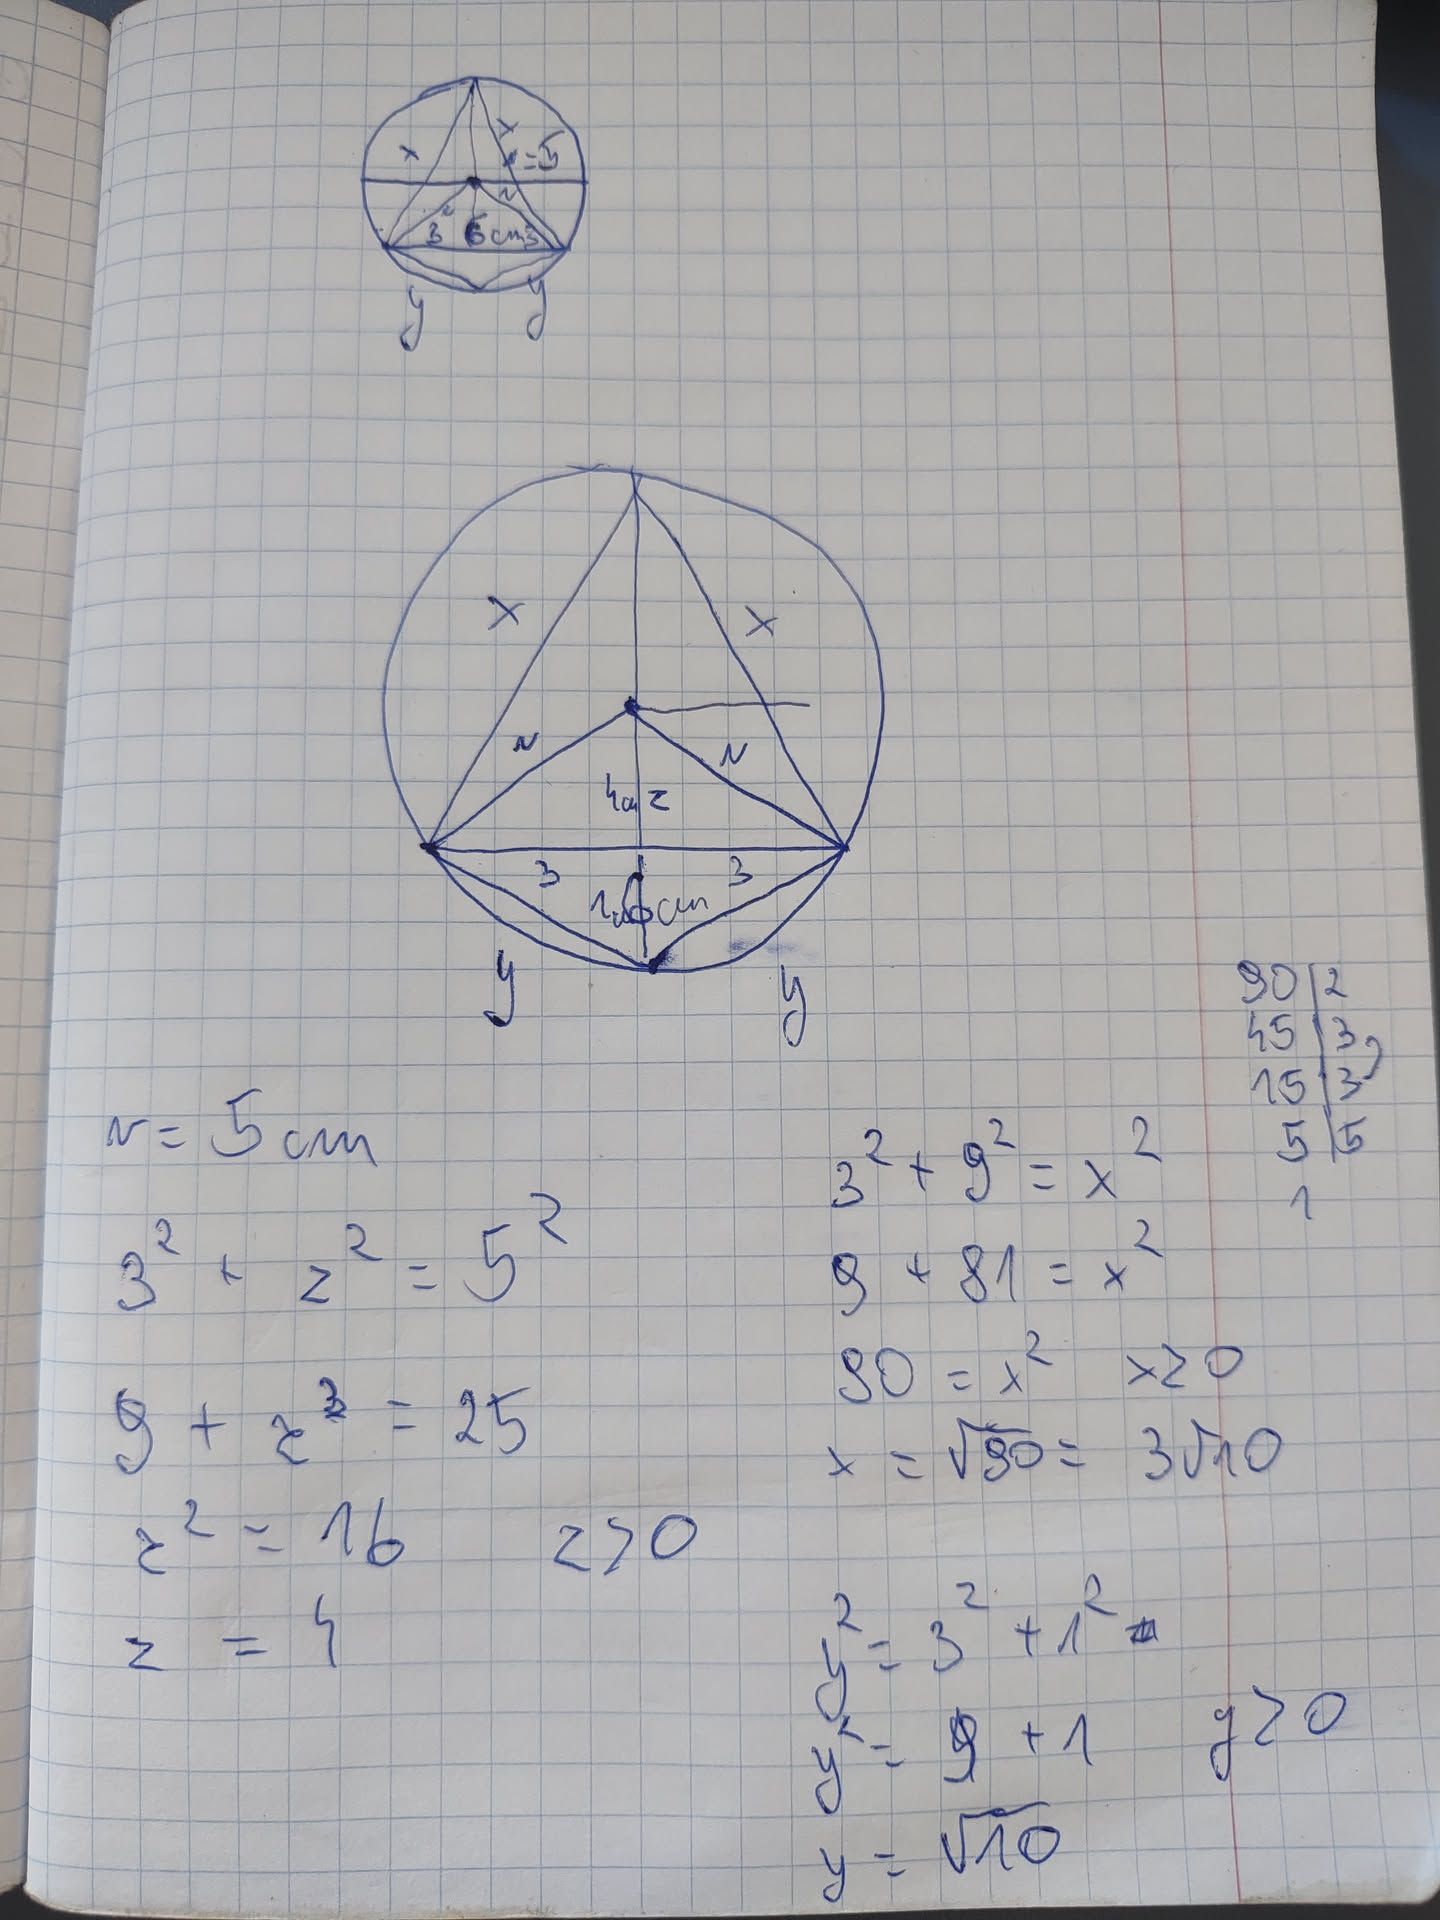 x
x
r = 5
r
r
3 6cm 3
y y
x x
r r
4cm z
3 3
1cm 6cm
y y
90 | 2
45 | 3
15 | 3
5 | 5
1
r = 5 cm
3² + z² = 5²
9 + z² = 25
z² = 16 z > 0
z = 4
3² + 9² = x²
9 + 81 = x²
90 = x² x ≥ 0
x = √90 = 3√10
y² = 3² + 1²
y² = 9 + 1 y ≥ 0
y = √10